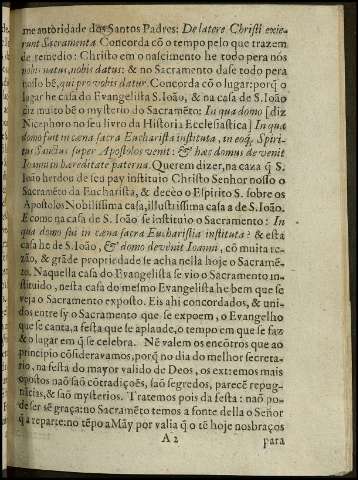 me autoridade dos Santos Padres: De latere Christi exie-
runt Sacramenta Concorda cõ o tempo pelo que trazem
de remedio: Christo em o nascimento he todo pera nós
nobis natus, nobis datus: & no Sacramento dase todo pera
nosso bẽ, qui pro vobis datur. Concorda cõ o lugar: porq̃ o
lugar he casa do Evangelista S. Ioão, & na casa de S. Ioão
diz muito bẽ o mysterio do Sacramẽto: In qua domo [diz
Nicephoro no seu livro da Historia Ecclesiastica] In qua
domo fuit in cæna sacra Eucharistia instituta, in eoq́; Spiri-
tus Sanctus super Apostolos venit: & hæc domus devenit
Ioanni in hæreditate paterna. Querem dizer, na caza q̃ S.
Ioão herdou de seu pay instituio Christo Senhor nosso o
Sacramẽto da Eucharistia, & deceo o Espirito S. sobre os
Apostolos Nobilissima casa, illustrissima casa a de S. Ioão.
E como na casa de S. Ioão se instituio o Sacramento: In
qua domo fui in cæna sacra Eucharistia instituta? & esta
casa he de S. Ioão, & domo devênit Ioanni, cõ muita re-
zão, & grãde propriedade se acha nella hoje o Sacramẽ-
to. Naquella casa do Evangelista se vio o Sacramento in-
stituido, nesta casa do mesmo Evangelista he bem que se
veja o Sacramento exposto. Eis ahi concordados, & uni-
dos entre sy o Sacramento que se expoem, o Evangelho
que se canta, a festa que se aplaude, o tempo em que se faz
& o lugar em q̃ se celebra. Nẽ valem os encõtros que ao
principio cõsideravamos, porq̃ no dia do melhor secreta-
rio, na festa do mayor valido de Deos, os extremos mais
opostos naõ saõ cõtradiçoẽs, saõ segredos, parecẽ repug-
nãcias, & saõ mysterios. Tratemos pois da festa: naõ po-
de ser sẽ graça: no Sacramẽto temos a fonte della o Señor
q̃ a reparte: no tẽpo a Mãy por valia q̃ o tẽ hoje nos braços
A 2 para